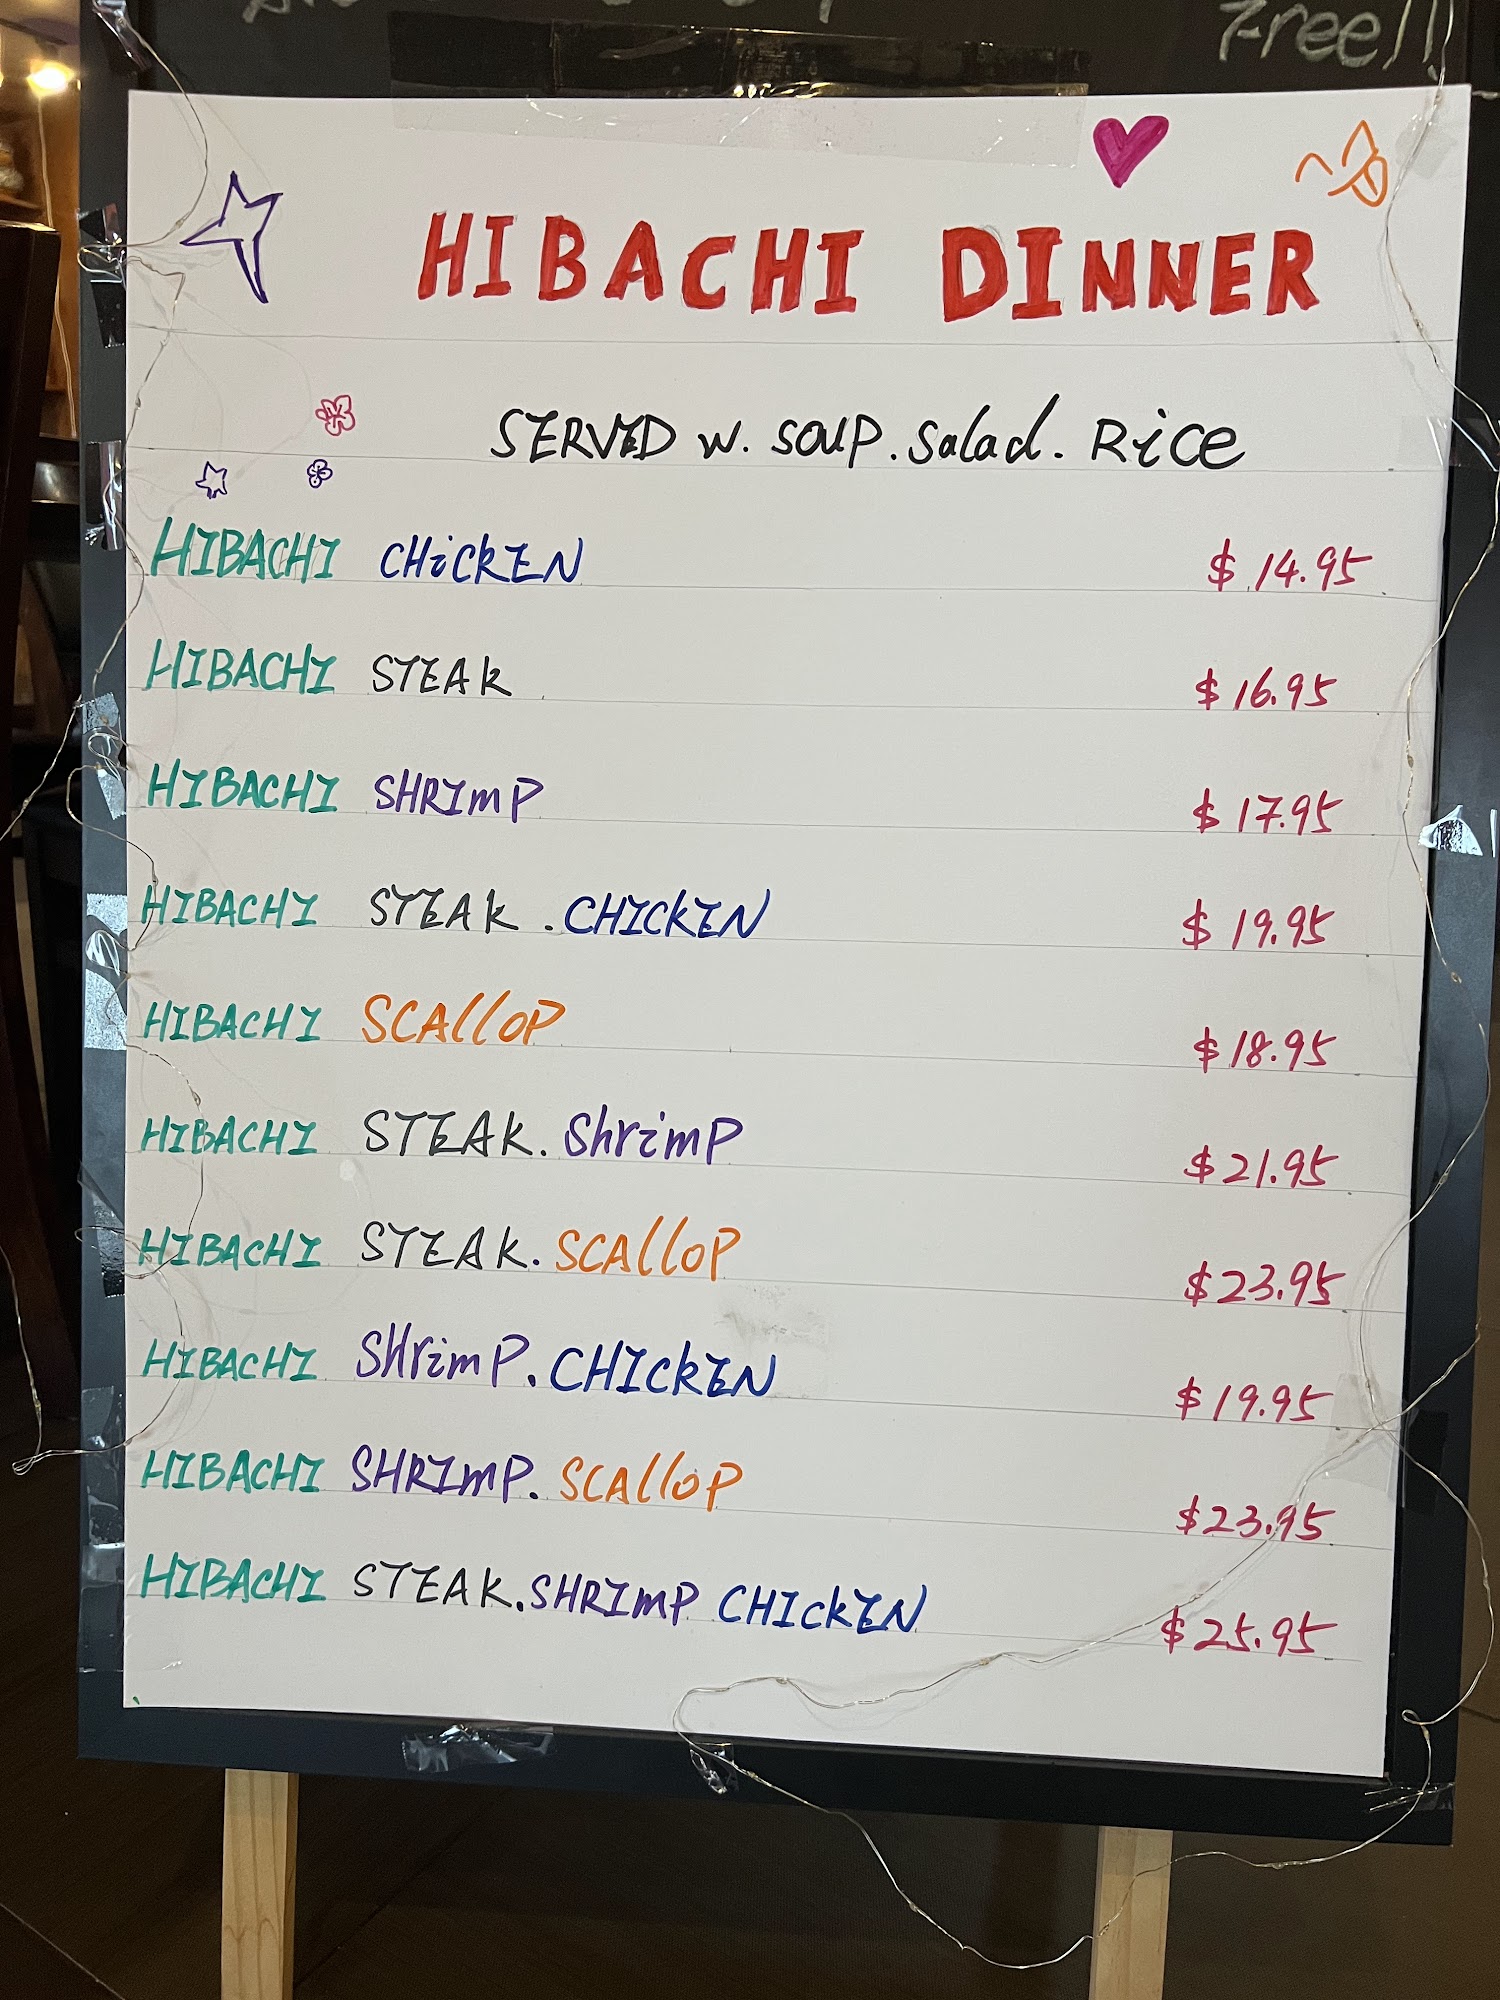 Free!!
HIBACHI DINNER
SERVED W. SOUP. Salad. Rice
HIBACHI CHiCKEN $ 14.95
HIBACHI STEAK $ 16.95
HIBACHI SHRImP $ 17.95
HIBACHI STEAK . CHICKEN $ 19.95
HIBACHI SCAlloP $ 18.95
HIBACHI STEAK. ShrimP $ 21.95
HIBACHI STEAK. SCAlloP $ 23.95
HIBACHI SHrimP. CHICKEN $ 19.95
HIBACHI SHRImP. SCAlloP $ 23.95
HIBACHI STEAK. SHRImP CHICKEN $ 25.95